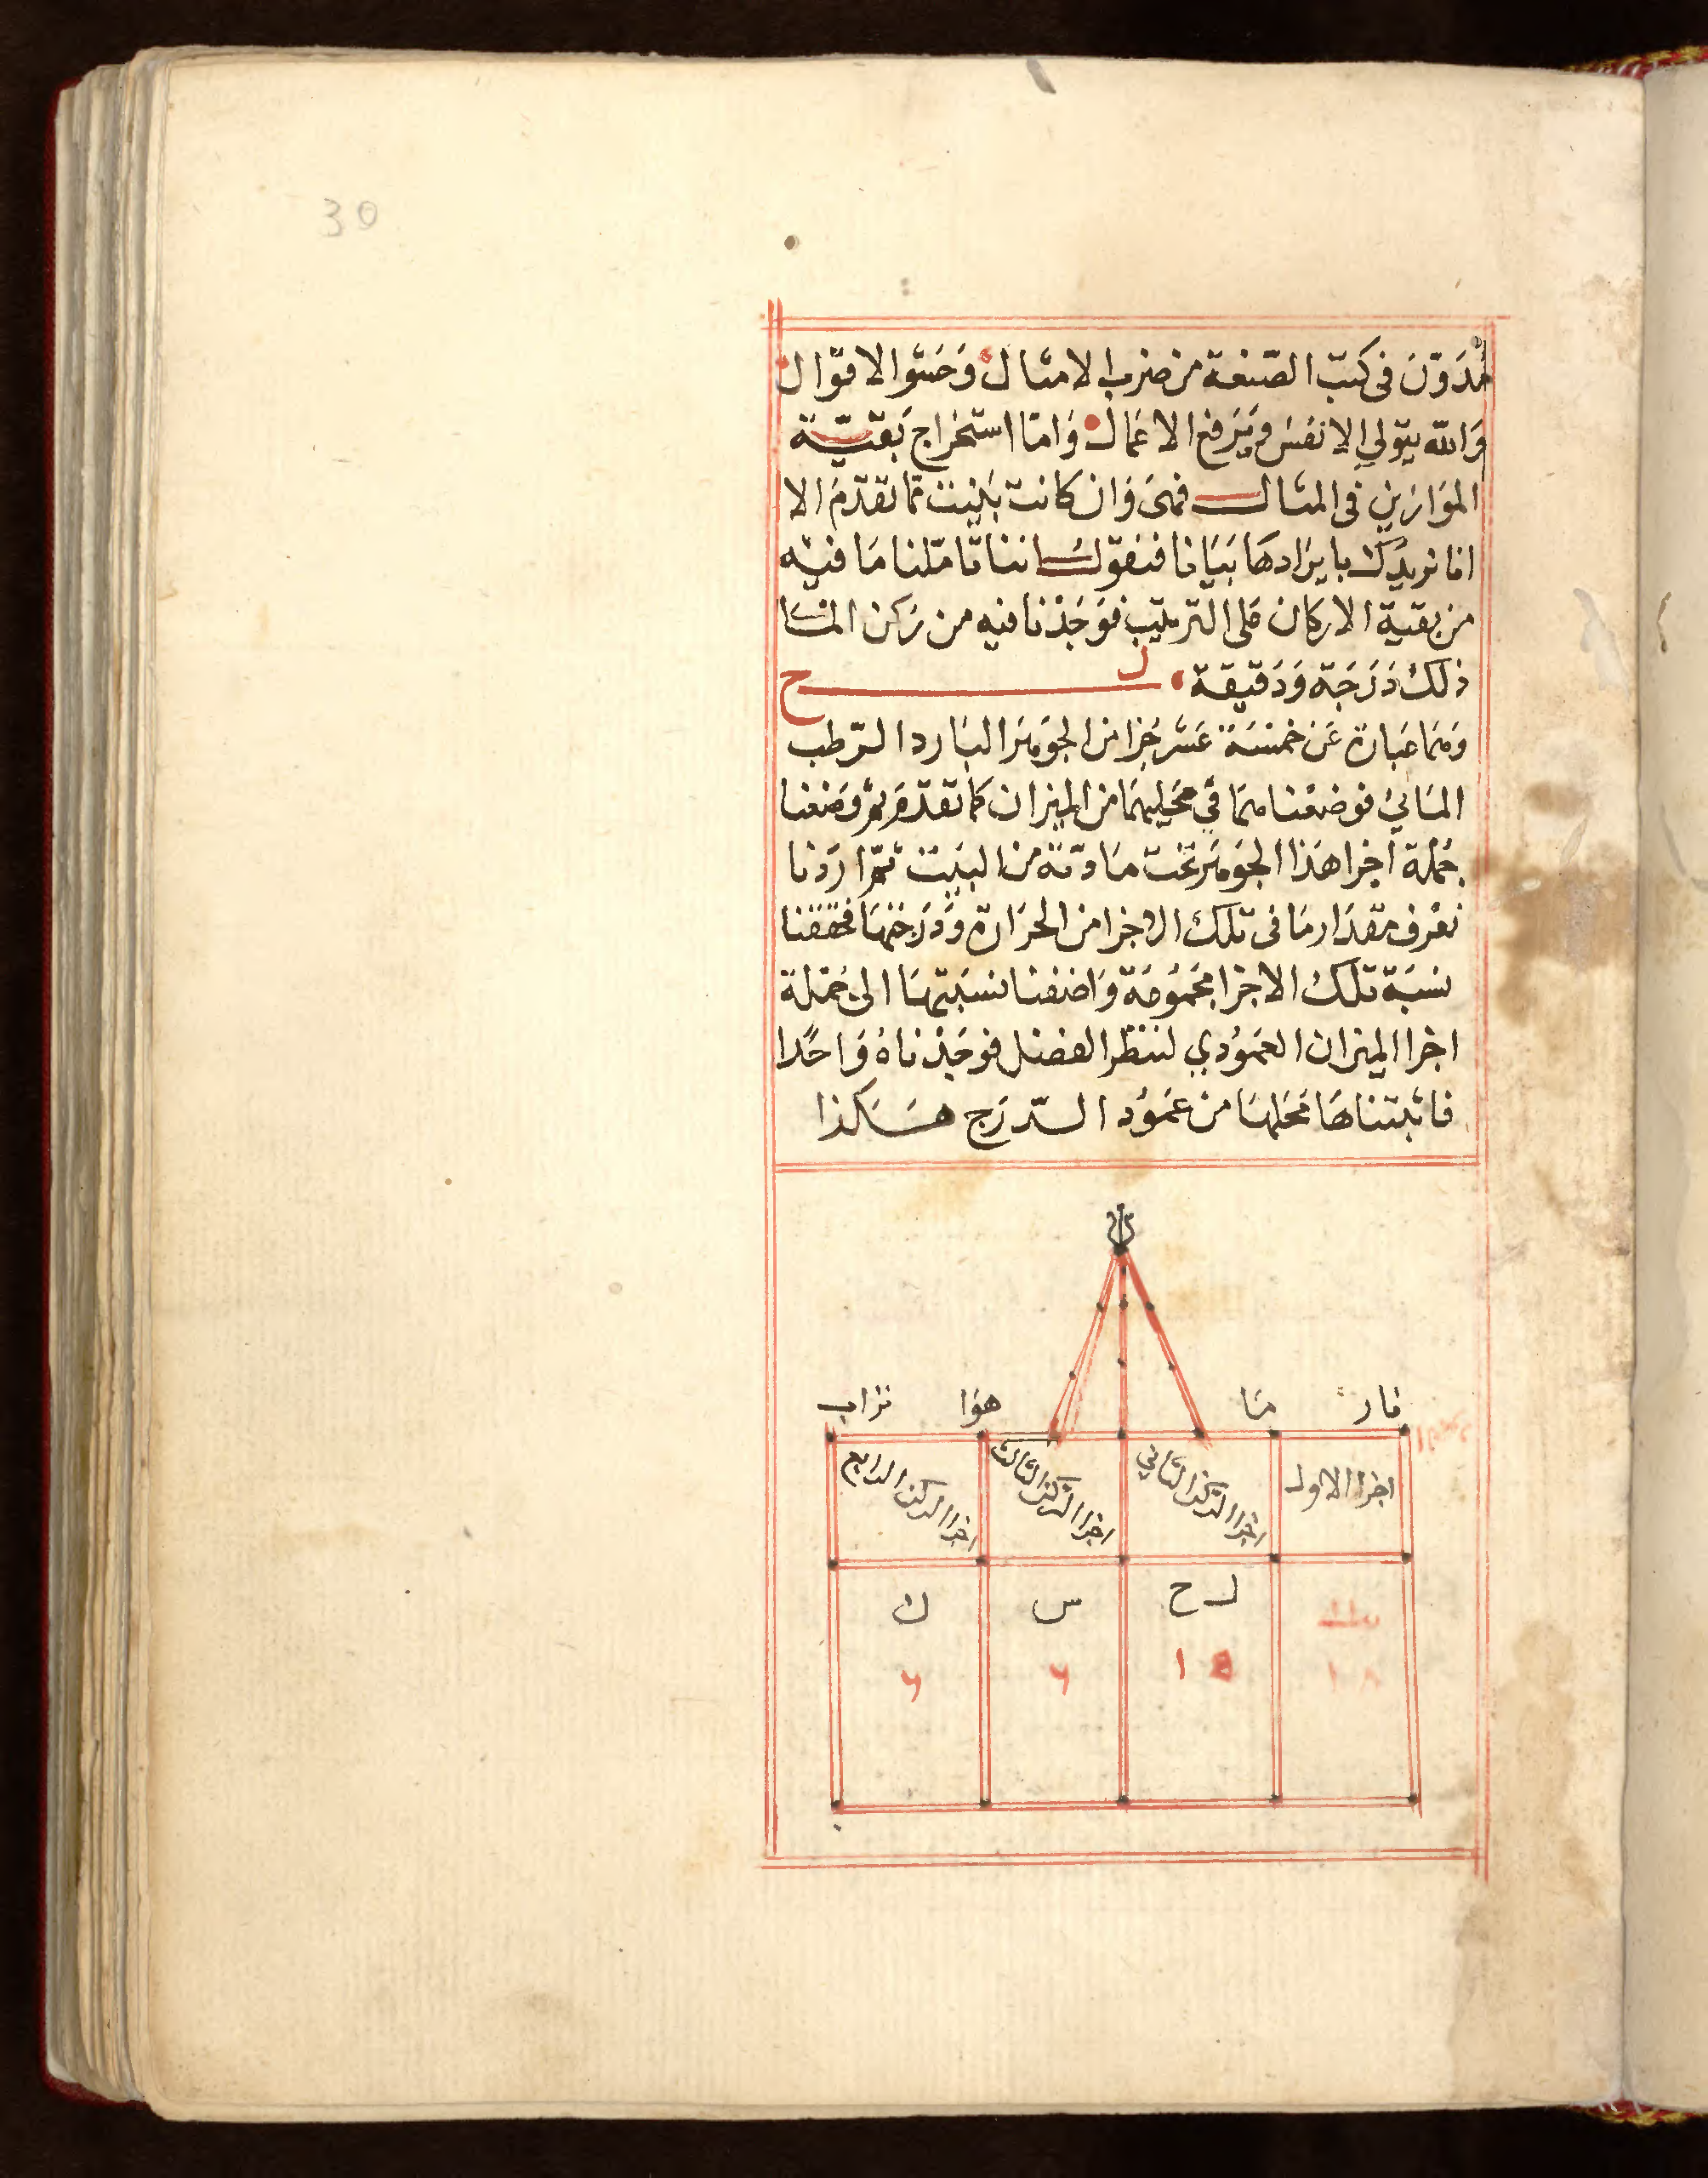 30
مدوّن فى كتب الصّنعة من ضرب الامثال وَحَشو الاقوال
وَالله يتولي الانفس وَيَرفع الاعمال وَامّا استخراج بَقيّة
الموَازين فى المثال فهىَ وَان كانت بَيّنت ممّا تقدّمَ الا
انا نريدك بايرَادهَا بَيَانا فنقول اننا تامّلنا مَا فيه
من بقية الاركان على الترتيب فوَجَدْنا فيه من رَكن المَا
ذلك دَرَجَة وَدَقيقة ل ح
وَهمَا عبَارة عَن خمسَة عَشر جُزا من الجوهَر البَارد الرّطب
المَائي فوضعْنا همَا في محَليهمَا من الميزان كمَا تقدّمَ ثم وَضعنا
جُملة اجزا هَذا الجوهَر تحت مَادّته من البيَت ثمّ ارَدْنا
نعْرف مقدَار مَا فى تلك الاجزا من الحرَارة وَدَرَجتهَا فحققنا
نسبَة تلك الاجزا مجموُعَة وَاضفنا نسبَتهَا الى جُملة
اجزا الميزان العموُدي لننظر الفضل فوجَدْناهُ وَاحدًا
فاثبتناهَا محَلهَا من عَموُد الدّرَج هَكذا
نار مَا هوَا تراب
اجزا الاول اجزا الركن الثاني اجزا الركن الثالث اجزا الركن الرابع
ل ح س ك
١٥ ٦ ٦